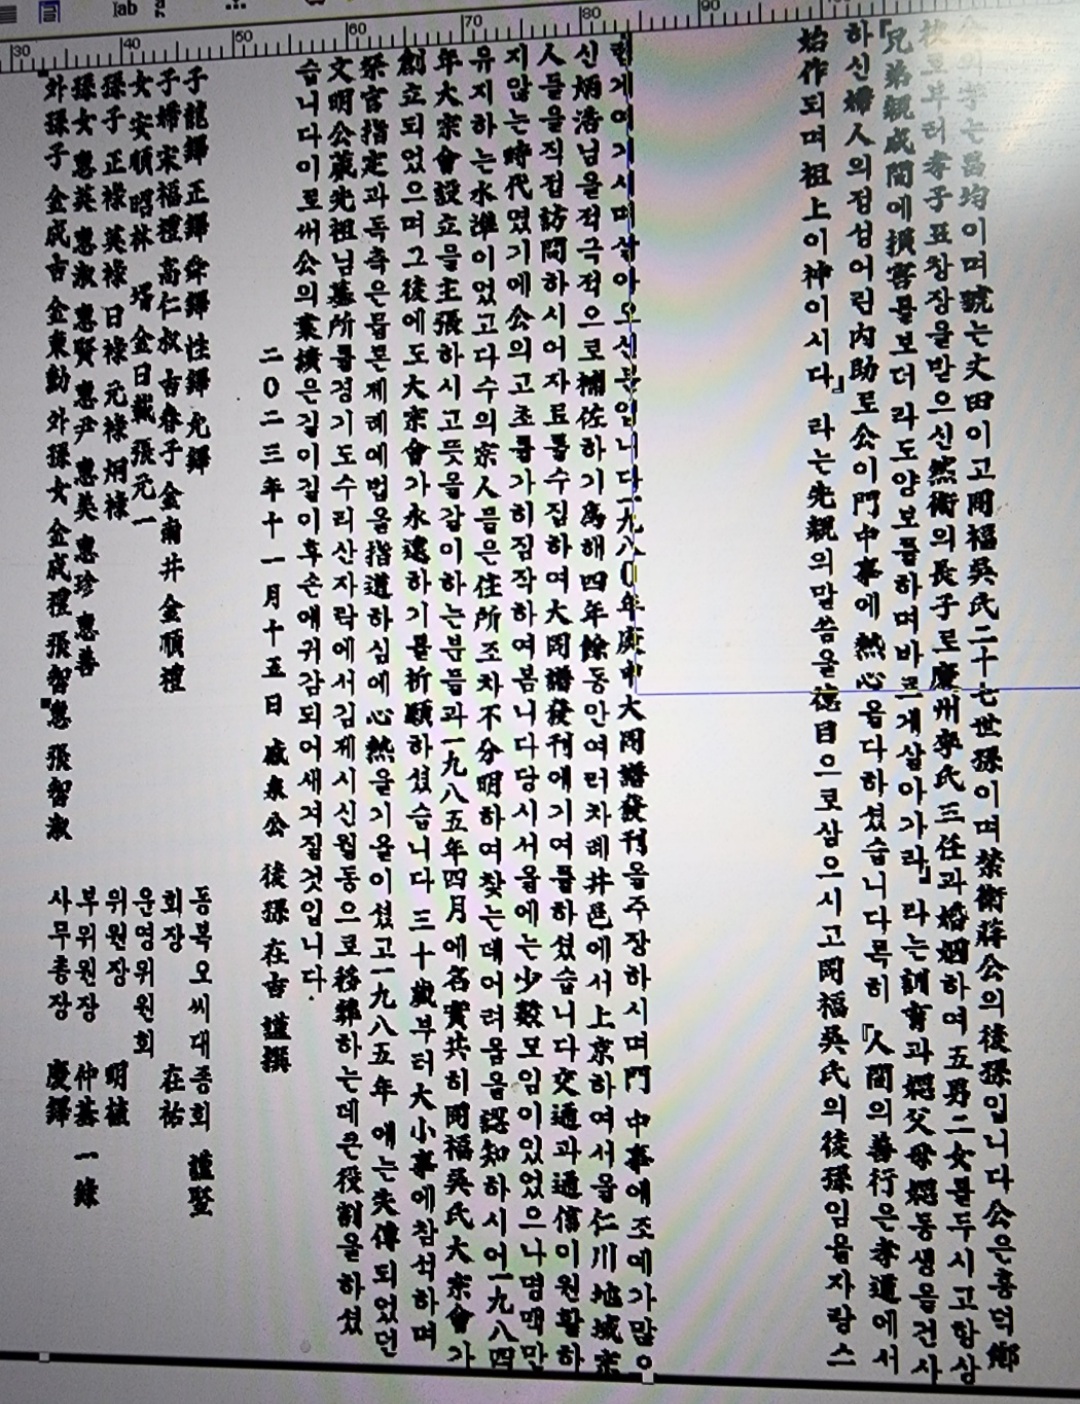 公의字는昌均이며號는丈田이고同福吳氏二十七世孫이며禁衛將公의後孫입니다公은흥덕鄕
校로부터孝子표창장을받으신然術의長子로慶州李氏三任과婚姻하여五男二女를두시고항상
『兄弟親戚間에損害를보더라도양보를하며바르게살아가라』라는訓育과 父母 동생을건사
하신婦人의정섬어린內助로公이門中事에熱心옵다하셨습니다목히『人間의善行은孝道에서
始作되며祖上이神이시다』라는先親의말씀을德目으로삼으시고同福吳氏의後孫임을자랑스
럽게여기시며살아오신분입니다一九八0年庚申大同譜發刊을주장하시며門中事에조예가많으
신炳浩님을적극적으로補佐하기爲해四年餘동안여러차례井邑에서上京하여서울仁川地域宗
人들을직접訪問하시어자료를수집하여大同譜發刊에기여를하셨습니다交通과通信이원활하
지않는時代였기에公의고초를가히짐작하여봅니다당시서울에는少數모임이있었으나명맥만
유지하는水準이었고다수의宗人들은住所조차不分明하여찾는데어려움을認知하시어一九八四
年大宗會設立을主張하시고뜻을같이하는분들과一九八五年四月에名實共히同福吳氏大宗會가
創立되었으며그後에도大宗會가永遠하기를祈願하셨습니다三十歲부터大小事에참석하며
祭官指定과독축은물론제례예법을指導하심에心熱을기울이셨고一九八五年에는失傳되었던
文明公葳先祖님墓所를경기도수리산자락에서김제시신월동으로移葬하는데큰役割을하셨
습니다이로써公의業績은길이길이후손에귀감되어새겨질것입니다.
二0二三年十一月十五日 咸泉公 後孫 在吉 謹撰
子龍鐸 正鐸 舜鐸 性鐸 允鐸
子婦宋福禮 高仁叔 吉春子 金南井 金順禮
女安順 昭林 壻金日載 張元一
孫子 正祿 英祿 日祿 元祿 炯祿
孫女 惠英 惠淑 惠賢 惠尹 惠美 惠珍 惠善
外孫子金成吉 金東勳 外孫女 金成禮 張智惠 張智淑
동복오씨대종회 謹竪
회장 在祐
운영위원회
위원장 明植
부위원장 仲基 一錄
사무총장 慶鐸